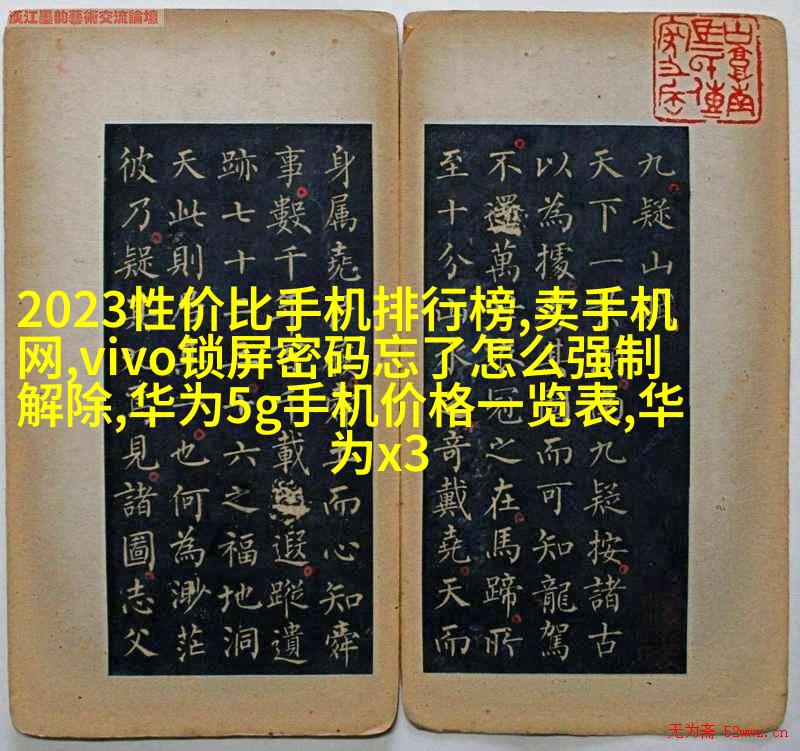 漢江墨韵藝術交流論壇
九疑山
天下一九疑按諸古
以為據圖而可知龍駕
不還萬冠之在馬蹄所
至十分奇戴堯天而
身属堯而心知舜
事數千載遐蹤遺
跡七十六之福地洞
天此則也何為渺茫
彼乃疑見諸圖志父
2023性价比手机排行榜,卖手机
网,vivo锁屏密码忘了怎么强制
解除,华为5g手机价格一览表,华
为x3
无为斋 52wwz.cn